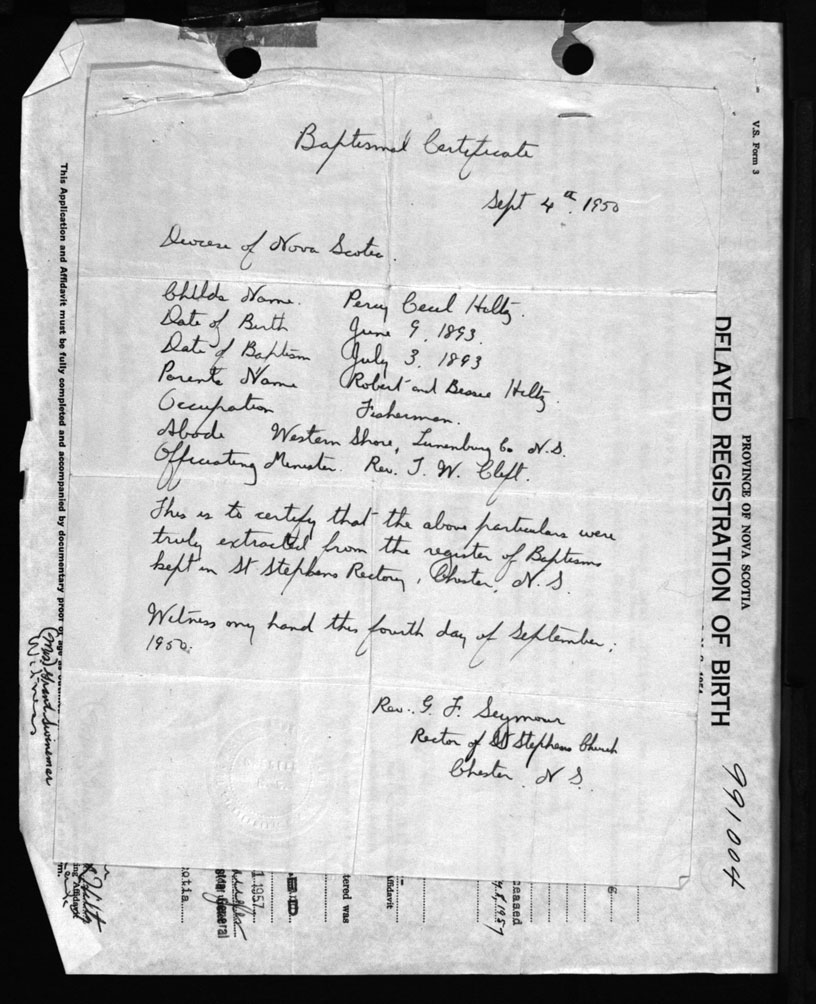 Baptismal Certificate
Sept 4th. 1950
Diocese of Nova Scotia.
Childs Name. Percy Cecil Hiltz.
Date of Birth June 9, 1893.
Date of Baptism July 3, 1893
Parents Name Robert and Bessie Hiltz.
Occupation Fisherman.
Abode Western Shore, Lunenburg Co N.S.
Officiating Minister. Rev. T. W. Clift.
This is to certify that the above particulars were
truly extracted from the register of Baptisms
kept in St Stephens Rectory, Chester, N.S.
Witness my hand this fourth day of September,
1950.
Rev. G. F. Seymour
Rector of St Stephens Church
Chester. N S.
V.S. Form 3
PROVINCE OF NOVA SCOTIA
DELAYED REGISTRATION OF BIRTH
991004
This Application and Affidavit must be fully completed and accompanied by documentary proof of age as
(Mrs) Swinemar
Witness
ceased
8, 1957
ffidavit
tered was
1 1957
General
cotia
ing Affidavit
Hiltz